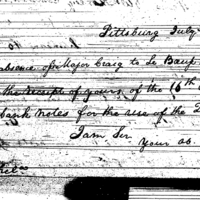 Pittsburg July
absence of Major Craig to Le Beuf
the receipt of yours of the 16th
bank notes for the use of the
I am Sir
Your ob.